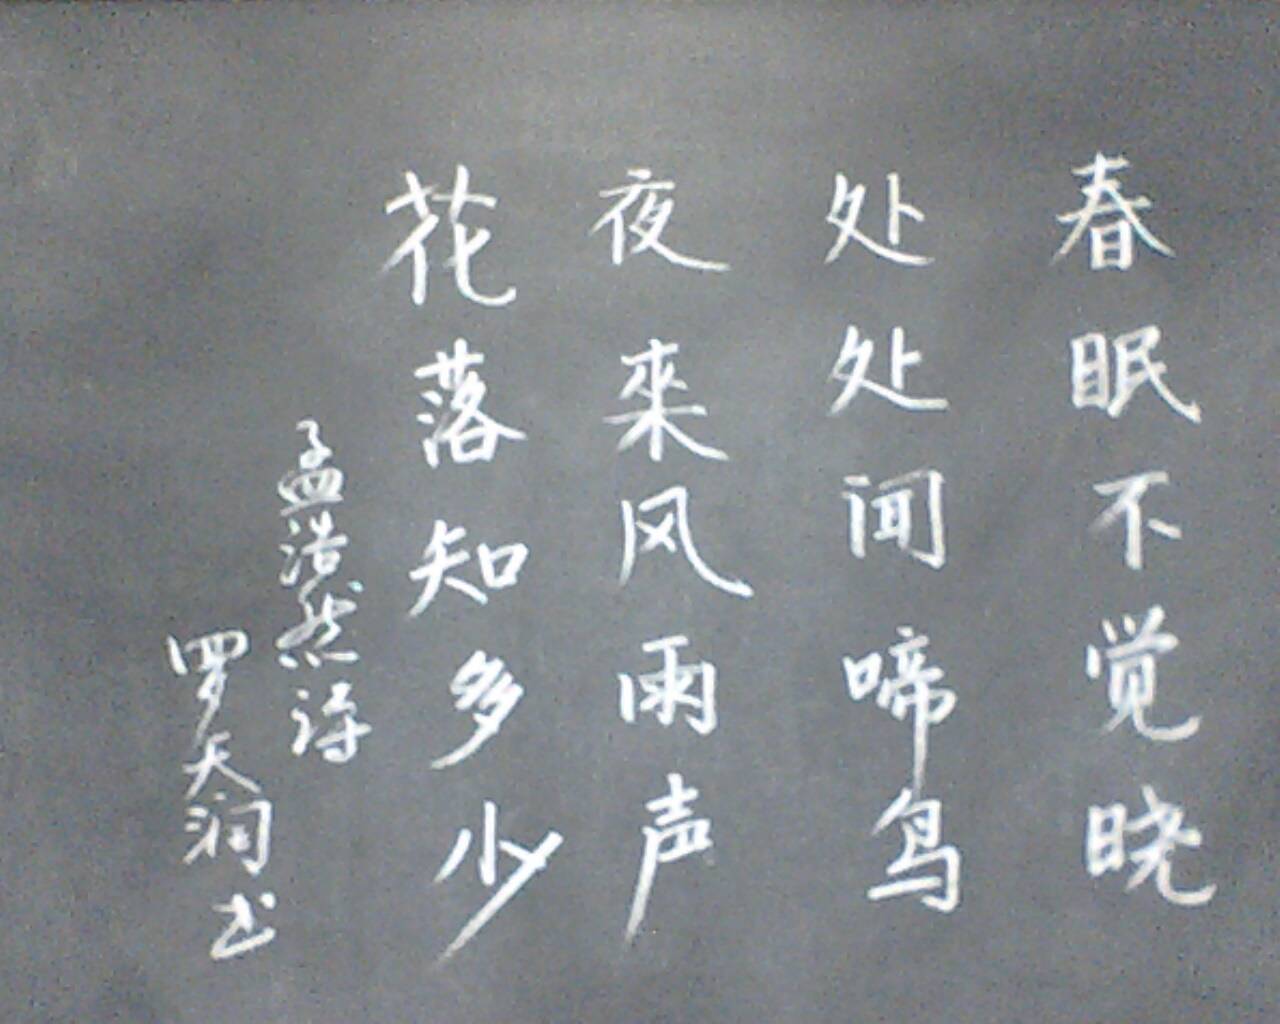 春眠不觉晓
处处闻啼鸟
夜來风雨声
花落知多少
孟浩然诗
罗天润书